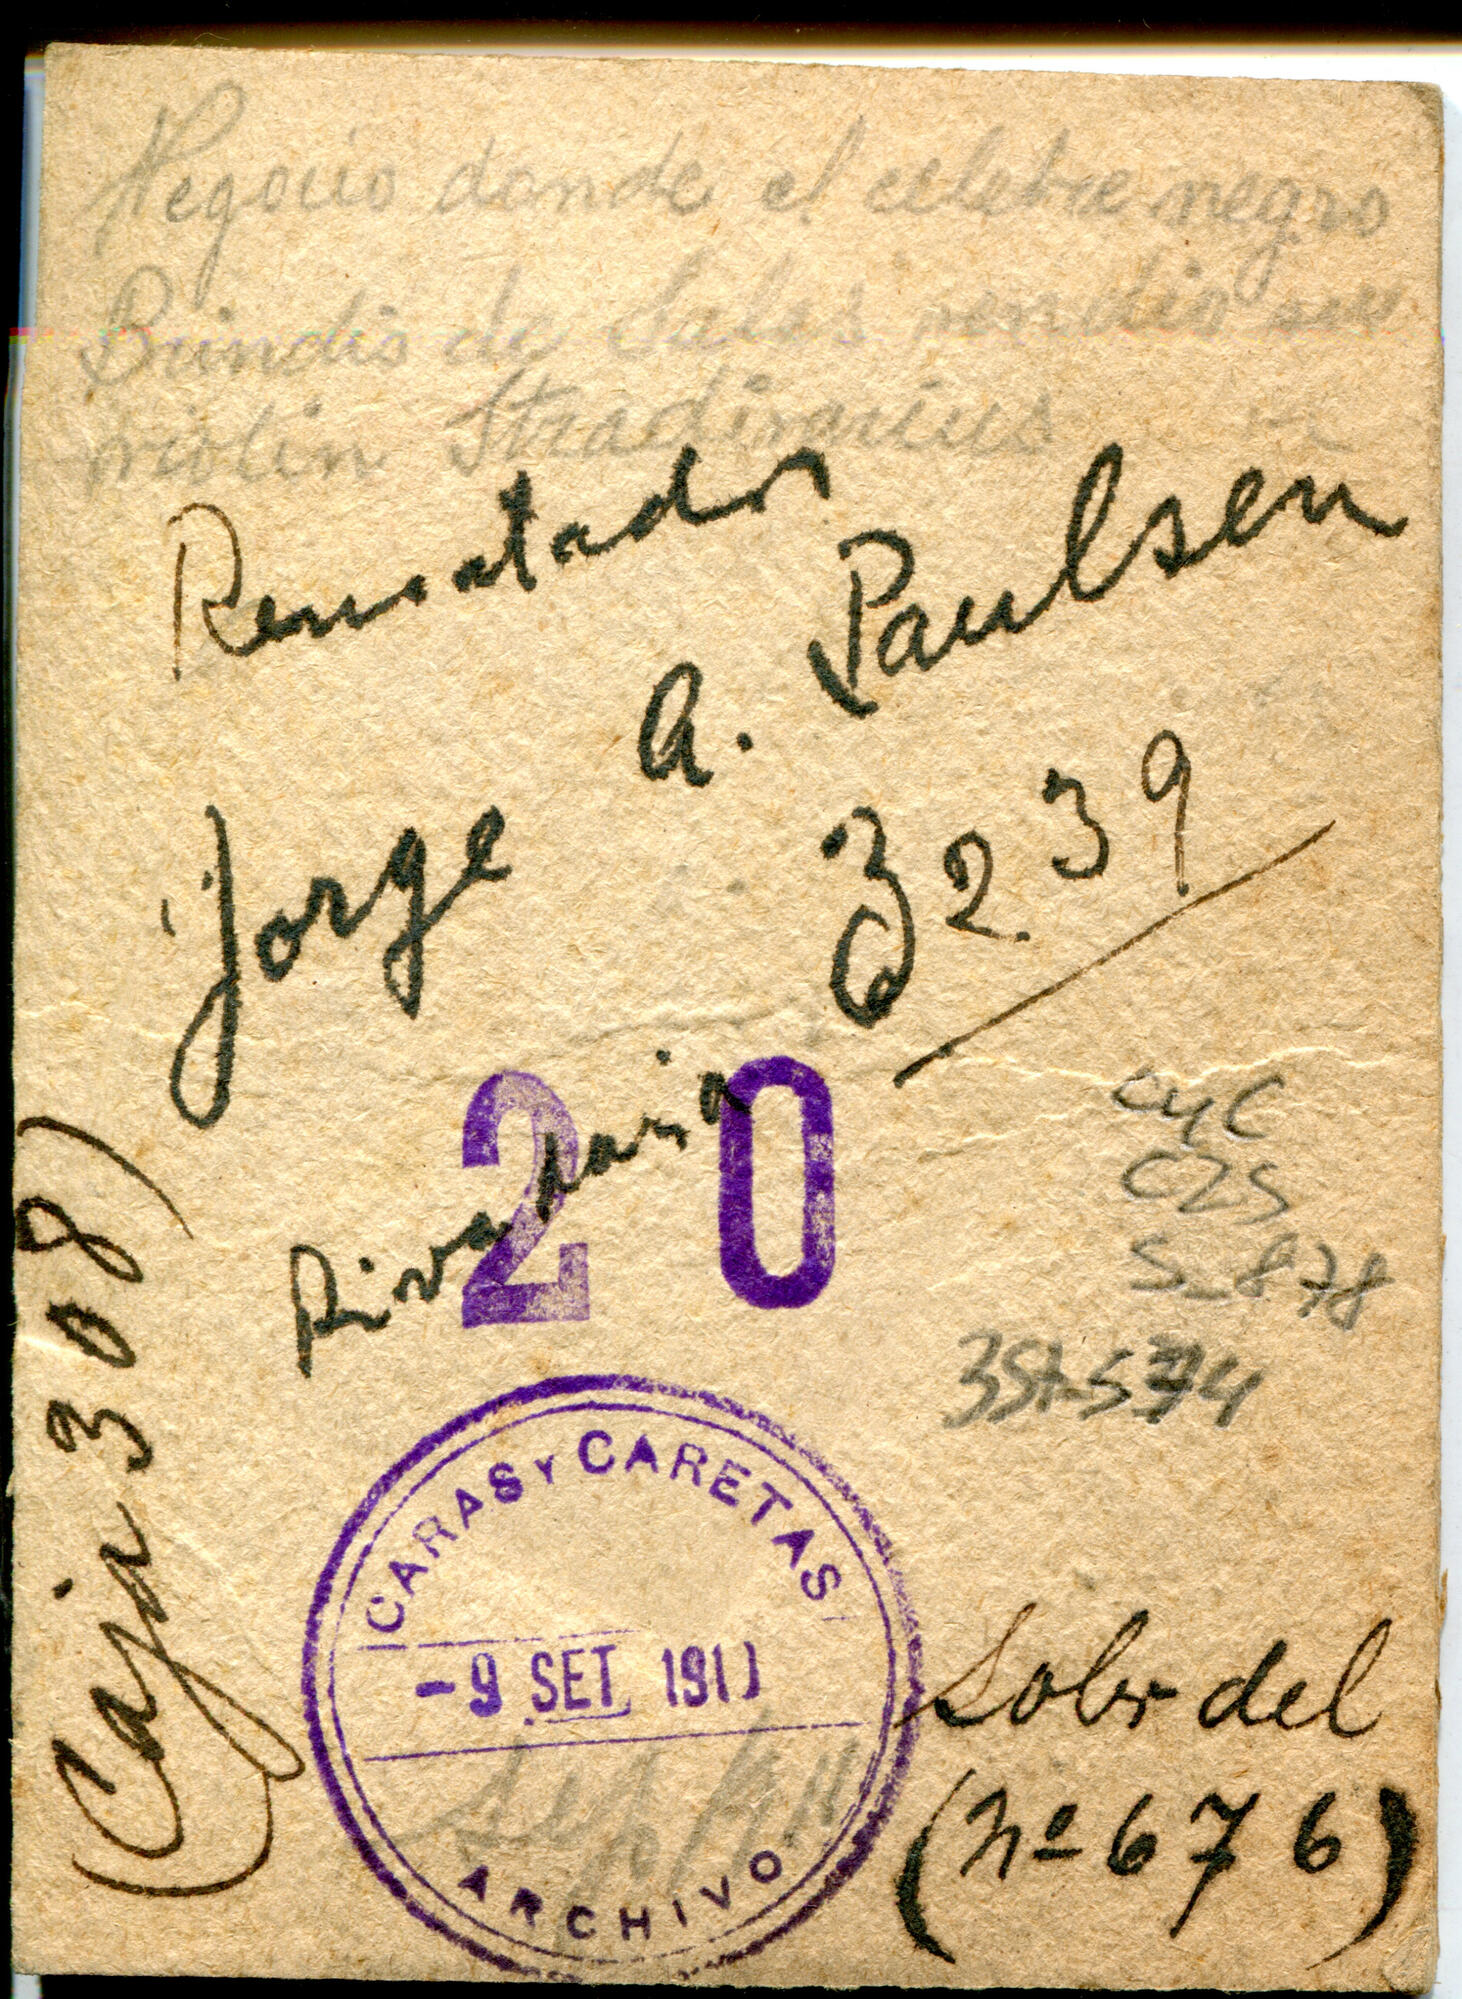 Negocio donde el celebre negro
Brindis de Salas vendio su
violin Stradivarius
Rematador
Jorge A. Paulsen
3239
Rivadavia
20
CyC
S_878
CARAS Y CARETAS
-9 SET. 1911
ARCHIVO
Sobre del
(Nº 676)
(Caja 308)